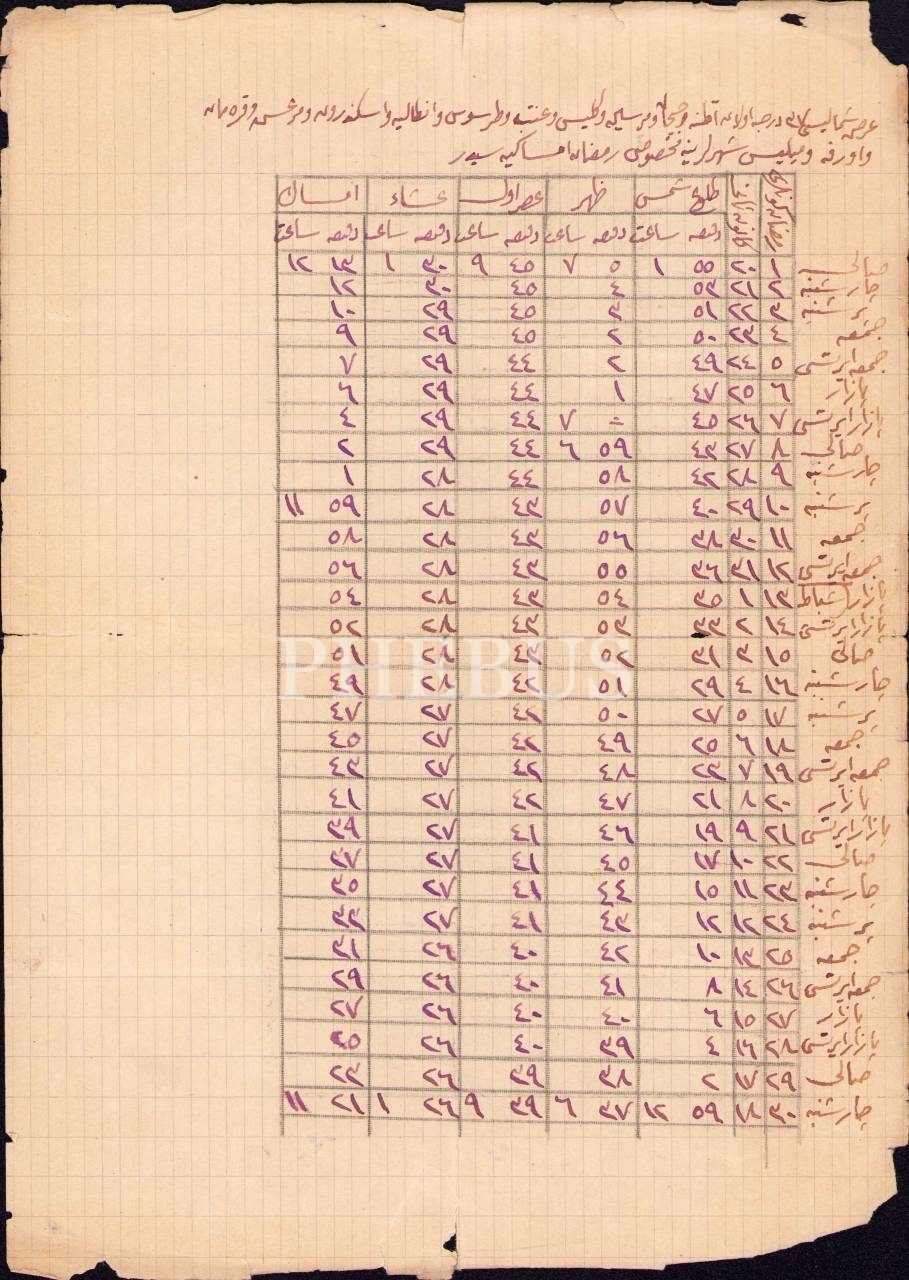 عرض شمالیسی ٣٧ درجه اولان آطنه وجیحان ومرسین وكلیس وعنتاب وطرسوس وانطالیه واسكندرون ومرعش وقره مان
واورفه شهرلرینه مخصوص رمضان امساكیه سیدر
رمضان كونلری كانون ثانی طلوع شمس ظهر عصر اول عشاء امساك
دقیقه ساعت دقیقه ساعت دقیقه ساعت دقیقه ساعت دقیقه ساعت
صالی ١ ٢٠ ٥٥ ١ ٥ ٧ ٤٥ ٩ ٣٠ ١ ١٣ ١٢
چارشنبه ٢ ٢١ ٥٣ ٤ ٤٥ ٣٠ ١٢
پرشنبه ٣ ٢٢ ٥١ ٣ ٤٥ ٢٩ ١٠
جمعه ٤ ٢٣ ٥٠ ٢ ٤٥ ٢٩ ٩
جمعه ایرتسی ٥ ٢٤ ٤٩ ٢ ٤٤ ٢٩ ٧
بازار ٦ ٢٥ ٤٧ ١ ٤٤ ٢٩ ٦
بازار ایرتسی ٧ ٢٦ ٤٥ = ٧ ٤٤ ٢٩ ٤
صالی ٨ ٢٧ ٤٣ ٥٩ ٦ ٤٤ ٢٩ ٢
چارشنبه ٩ ٢٨ ٤٢ ٥٨ ٤٤ ٢٨ ١
پرشنبه ١٠ ٢٩ ٤٠ ٥٧ ٤٣ ٢٨ ٥٩ ١١
جمعه ١١ ٣٠ ٣٨ ٥٦ ٤٣ ٢٨ ٥٨
جمعه ایرتسی ١٢ ٣١ ٣٦ ٥٥ ٤٣ ٢٨ ٥٦
بازار (شباط) ١٣ ١ ٣٥ ٥٤ ٤٣ ٢٨ ٥٤
بازار ایرتسی ١٤ ٢ ٣٣ ٥٣ ٤٣ ٢٨ ٥٢
صالی ١٥ ٣ ٣١ ٥٢ ٤٣ ٢٨ ٥١
چارشنبه ١٦ ٤ ٢٩ ٥١ ٤٢ ٢٨ ٤٩
پرشنبه ١٧ ٥ ٢٧ ٥٠ ٤٢ ٢٧ ٤٧
جمعه ١٨ ٦ ٢٥ ٤٩ ٤٢ ٢٧ ٤٥
جمعه ایرتسی ١٩ ٧ ٢٣ ٤٨ ٤٢ ٢٧ ٤٣
بازار ٢٠ ٨ ٢١ ٤٧ ٤٢ ٢٧ ٤١
بازار ایرتسی ٢١ ٩ ١٩ ٤٦ ٤١ ٢٧ ٣٩
صالی ٢٢ ١٠ ١٧ ٤٥ ٤١ ٢٧ ٣٧
چارشنبه ٢٣ ١١ ١٥ ٤٤ ٤١ ٢٧ ٣٥
پرشنبه ٢٤ ١٢ ١٢ ٤٣ ٤١ ٢٧ ٣٣
جمعه ٢٥ ١٣ ١٠ ٤٢ ٤٠ ٢٦ ٣١
جمعه ایرتسی ٢٦ ١٤ ٨ ٤١ ٤٠ ٢٦ ٢٩
بازار ٢٧ ١٥ ٦ ٤٠ ٤٠ ٢٦ ٢٧
بازار ایرتسی ٢٨ ١٦ ٤ ٣٩ ٤٠ ٢٦ ٢٥
صالی ٢٩ ١٧ ٢ ٣٨ ٣٩ ٢٦ ٢٣
چارشنبه ٣٠ ١٨ ٥٩ ١٢ ٣٧ ٦ ٣٩ ٩ ٢٦ ١ ٢١ ١١
PHEBUS